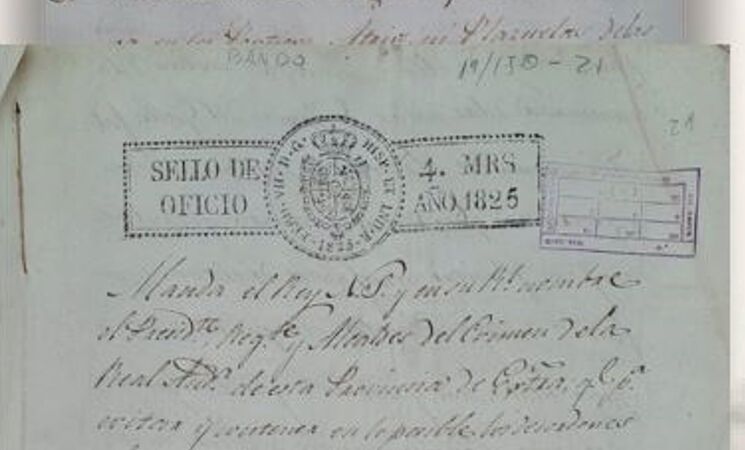 BANDO 19/130-21
21
SELLO DE OFICIO
FERD. VII. D. G. HISP. ET IND. R. 1825
4. MRS
AÑO 1825
Manda el Rey N. S. y en su Rl. nombre
el Presidte. Regte. y Alcaldes del Crimen de la
Real Auda. de esta Provincia de Extra. qe. pa.
evitar y contener en lo posible los desordenes